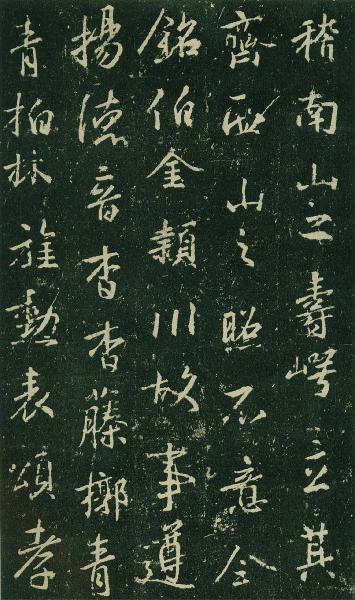 稽南山之壽崿立其
齊西山之照不意今
銘伯金潁川故事遵
揚德音杳杳藤槨青
青柏林旌勳表頌孝